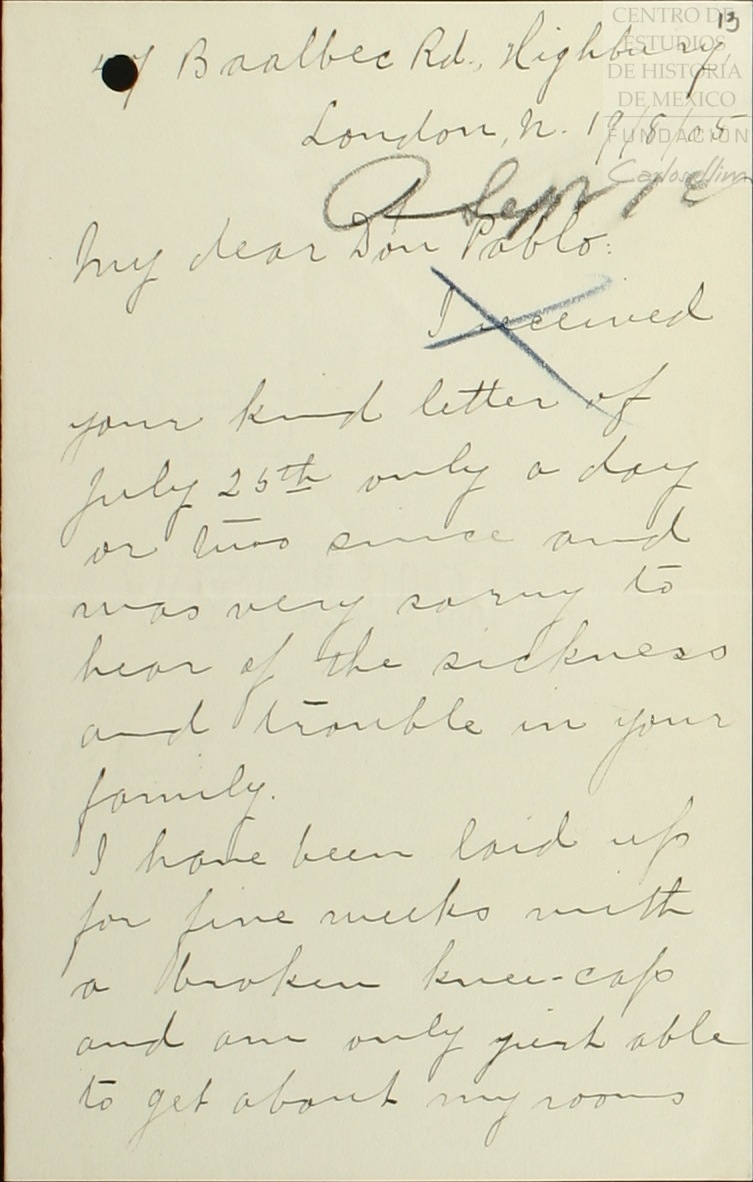 13
CENTRO DE
ESTUDIOS
DE HISTORIA
DE MEXICO
FUNDACIÓN
Carlos Slim
47 Baalbec Rd., Highbury,
London, N. 19/8/05
Sept 12
My dear Don Pablo:
I received
your kind letter of
July 25th only a day
or two since and
was very sorry to
hear of the sickness
and trouble in your
family.
I have been laid up
for five weeks with
a broken knee-cap
and am only just able
to get about my rooms